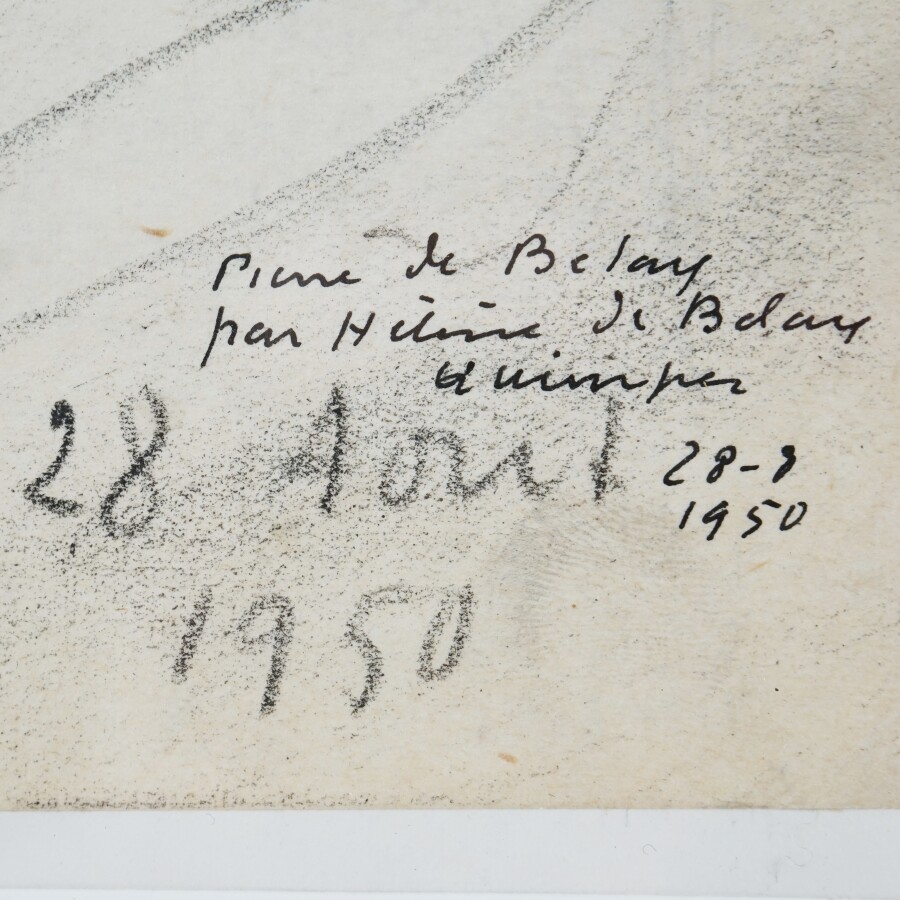 Pierre de Belay
par Hélène de Belay
Quimper
28 Aout
28-8
1950
1950